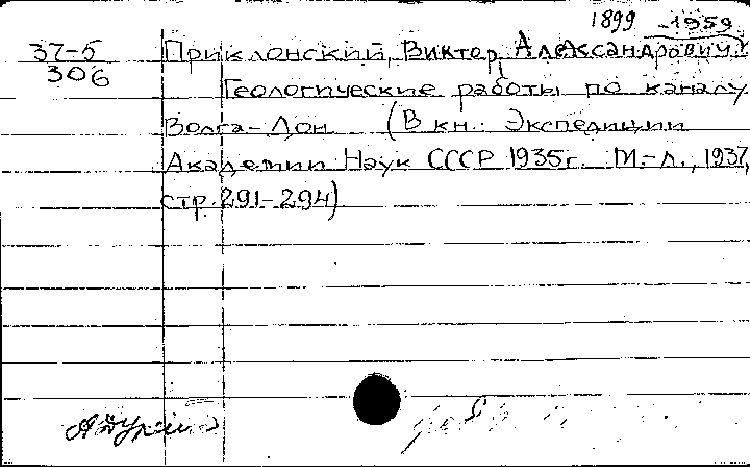 1899 -1959
37-5 Приклонский, Виктор Александрович.
306 Геологические работы по каналу
Волга-Дон (В кн.: Экспедиции
Академии Наук СССР 1935г. М.-Л., 1937,
стр. 291-294)